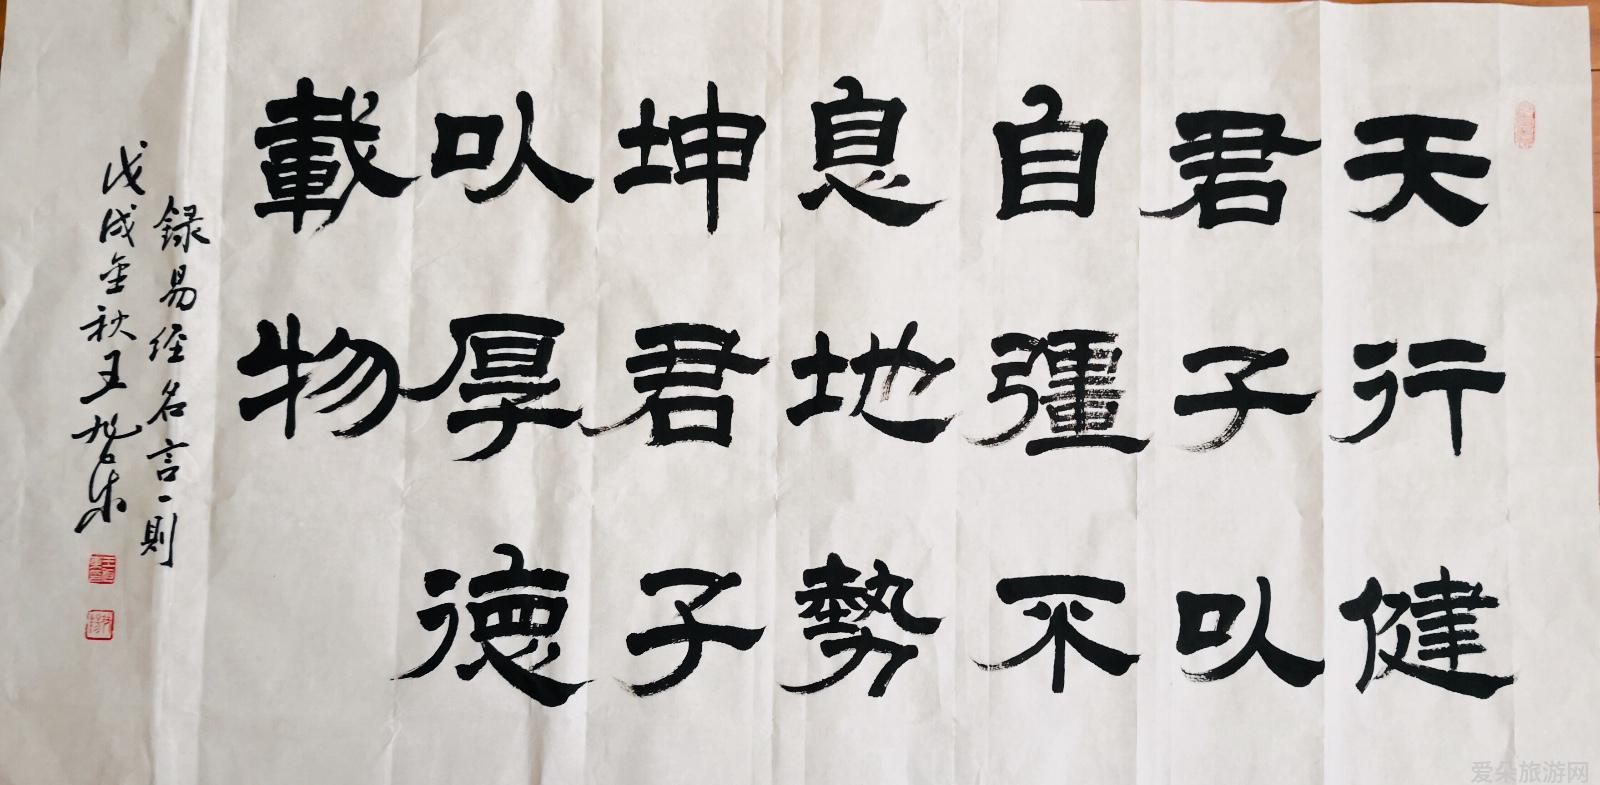 天行健
君子以
自彊不
息地勢
坤君子
以厚德
載物
録易经名言一則
戊戌金秋王旭东
爱朵旅游网